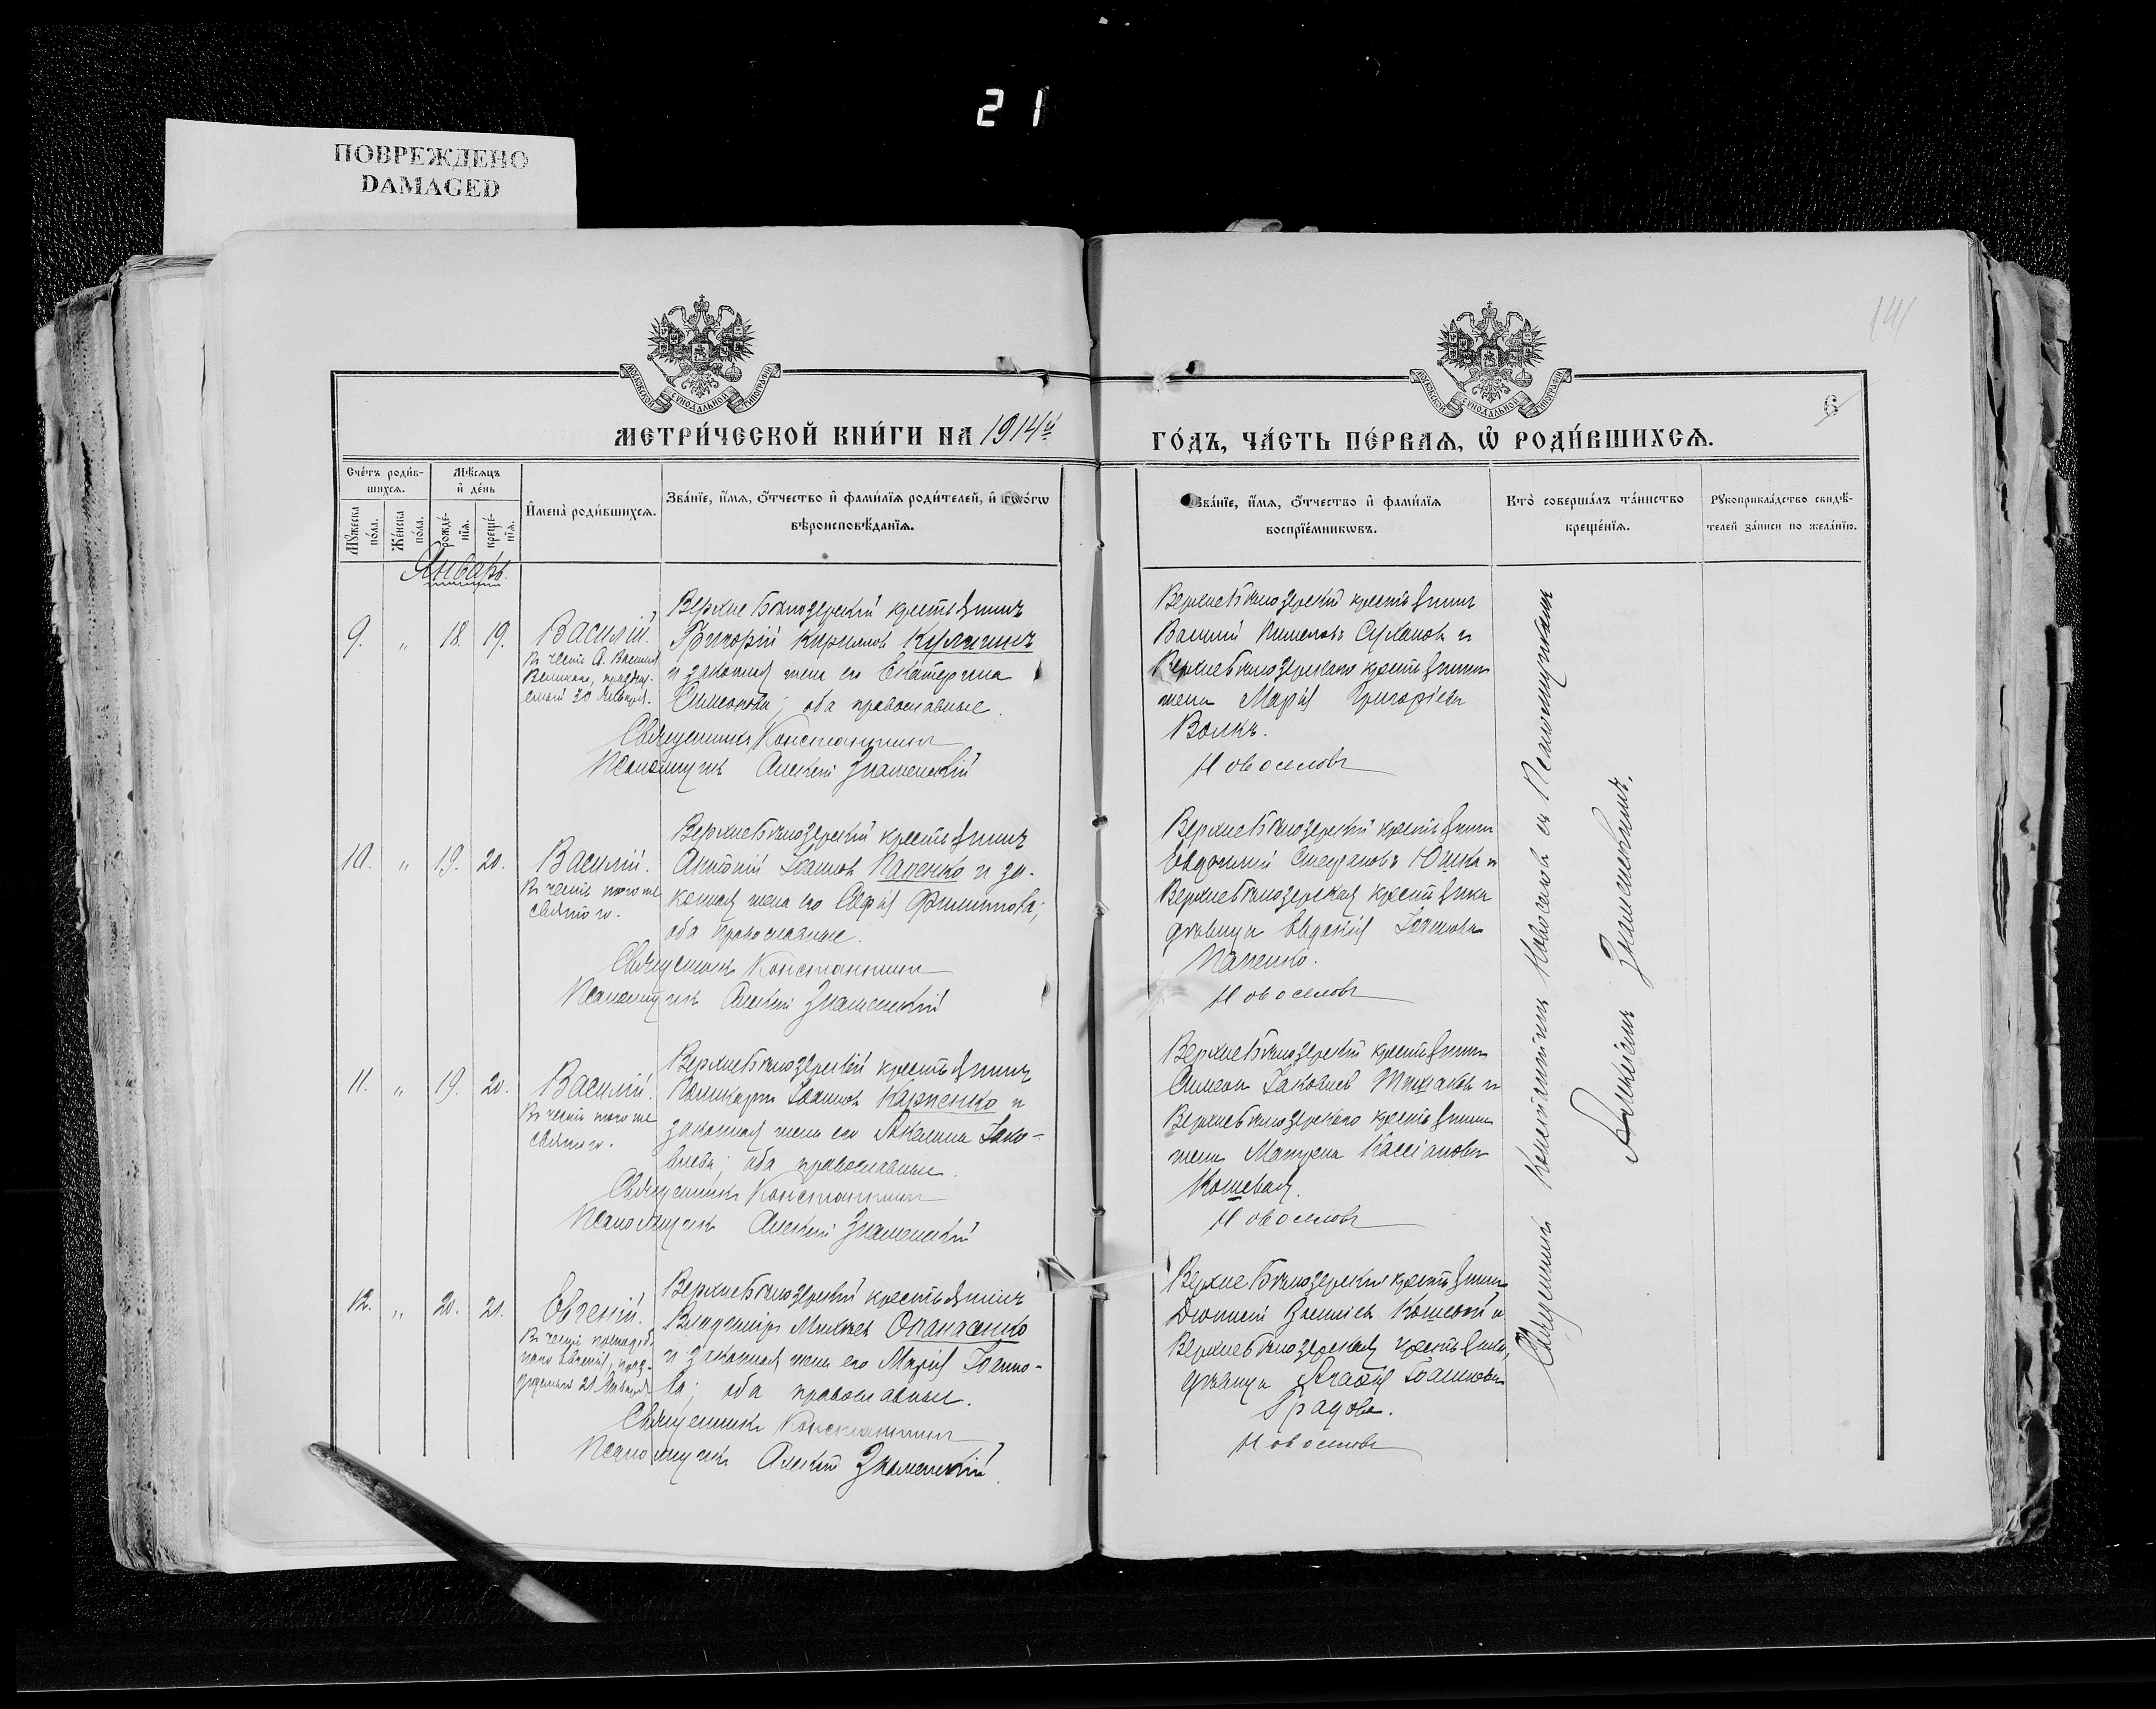 21
ПОВРЕЖДЕНО
DAMAGED
141
6
МОСКОВСКОЙ СѴНОДАЛЬНОЙ ТИПОГРАФІИ
МОСКОВСКОЙ СѴНОДАЛЬНОЙ ТИПОГРАФІИ
МЕТРИ́ЧЕСКОЙ КНИ́ГИ НА 1914й
ГО́ДЪ, ЧА́СТЬ ПЕ́РВАЯ, Ѡ РОДИ́ВШИХСЯ.
Сче́тъ роди́в-
шихся.
Мѣ́сяцъ
и де́нь
Му́жеска
по́ла.
Же́нска
по́ла.
рожде́-
нїя.
креще́-
нїя.
И҆мена̀ роди́вшихся.
Зва́нїе, и҆́мя, ѻ҆́тчество и҆ фами́лїя роди́телей, и҆ како́гѡ
вѣроисповѣ́данїя.
Зва́нїе, и҆́мя, ѻ҆́тчество и҆ фами́лїя
воспрїе́мникѡвъ.
Кто̀ соверша́лъ та́инство
креще́нїя.
Рꙋкоприкла́дство свидѣ́-
телей за́писи по жела́нїю.
Январь.
9. " 18. 19. Василій.
Въ честь Св. Василія
Великаго, праздну-
емый 30 Января.
Верхне Бѣлозерскій крестьянинъ
Григорій Кириловъ Куличинъ
и законная жена его Екатерина
Симонова; оба православные.
Священникъ Константинъ
Псаломщикъ Алексій Знаменскій
Верхне Бѣлозерскій крестьянинъ
Василій Пименовъ Сукановъ и
Верхне Бѣлозерскаго крестьянина
жена Марія Григоріева
Волкъ.
Новоселовъ
10. " 19. 20. Василій.
Въ честь того же
святого.
Верхне Бѣлозерскій крестьянинъ
Антоній Іоанновъ Папенко и за-
конная жена его Софія Филиппова;
оба православные.
Священникъ Константинъ
Псаломщикъ Алексій Знаменскій
Верхне Бѣлозерскій крестьянинъ
Евфимій Стефановъ Юшка и
Верхне Бѣлозерская крестьянка
дѣвица Евдокія Іоаннова
Папенко.
Новоселовъ
11. " 19. 20. Василій.
Въ честь того же
святого.
Верхне Бѣлозерскій крестьянинъ
Поликарпъ Іоанновъ Карпенко и
законная жена его Акилина Іако-
влева; оба православные.
Священникъ Константинъ
Псаломщикъ Алексій Знаменскій
Верхне Бѣлозерскій крестьянинъ
Симеонъ Іаковлевъ и
Верхне Бѣлозерскаго крестьянина
жена Матрона Кассіанова
Кошевая.
Новоселовъ
12. " 20. 21. Евгеній.
Въ честь преподоб-
наго Евгенія, праз-
днуемаго 21 Января
Верхне Бѣлозерскій крестьянинъ
Владиміръ Михеевъ Опанасенко
и законная жена его Марія Іоанно-
ва; оба православные.
Священникъ Константинъ
Псаломщикъ Алексій Знаменскій
Верхне Бѣлозерскій крестьянинъ
Діонисій Василіевъ Кошевой и
Верхне Бѣлозерская крестьянка,
дѣвица Агафія Іоаннова
Градова.
Новоселовъ
Священникъ Константинъ Новоселовъ съ Псаломщикомъ
Алексіемъ Знаменскимъ.